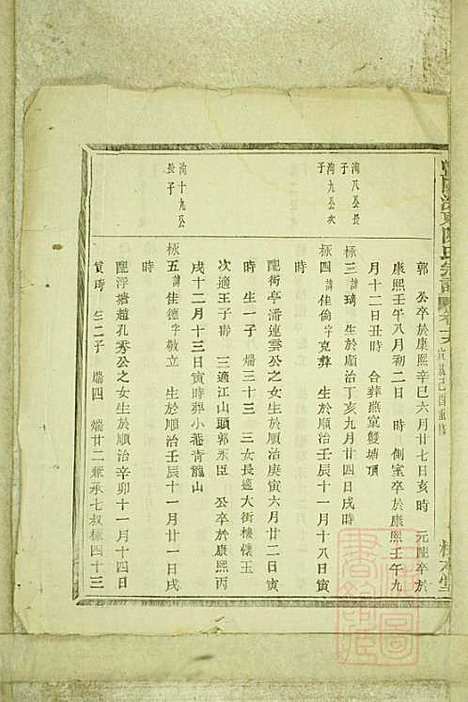 郭 公卒於康熙辛巳六月廿七日亥時 元配卒於
康熙壬午八月初二日 時 側室卒於康熙壬午九
月十二日丑時 合葬燕窠
洵八公長子
極三 諱琦 生於順治丁亥九月廿四日戌時
洵九公次子
極四 諱佳倫字克彝 生於順治壬辰十一月十八日寅
時
配街亭潘連雲公之女生於順治庚寅六月廿二日寅
時 生一子 端三十三 三女長適大街樓懷玉
次適王子 三適江山頭郭永臣 公卒於康熙丙
戌十二月十三日寅時葬小 青龍山
洵十九公長子
極五 諱佳德字敬立 生於順治壬辰十一月廿一日戌
時
配浮塘趙孔秀公之女生於順治辛卯十一月十四日
寅時 生二子 端四 端廿二兼承七叔極四十三